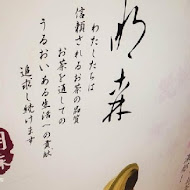 明森
わたしたちは
信頼されるお茶の品質
お茶を通しての
うるおいある生活への貢献
追求し続けます